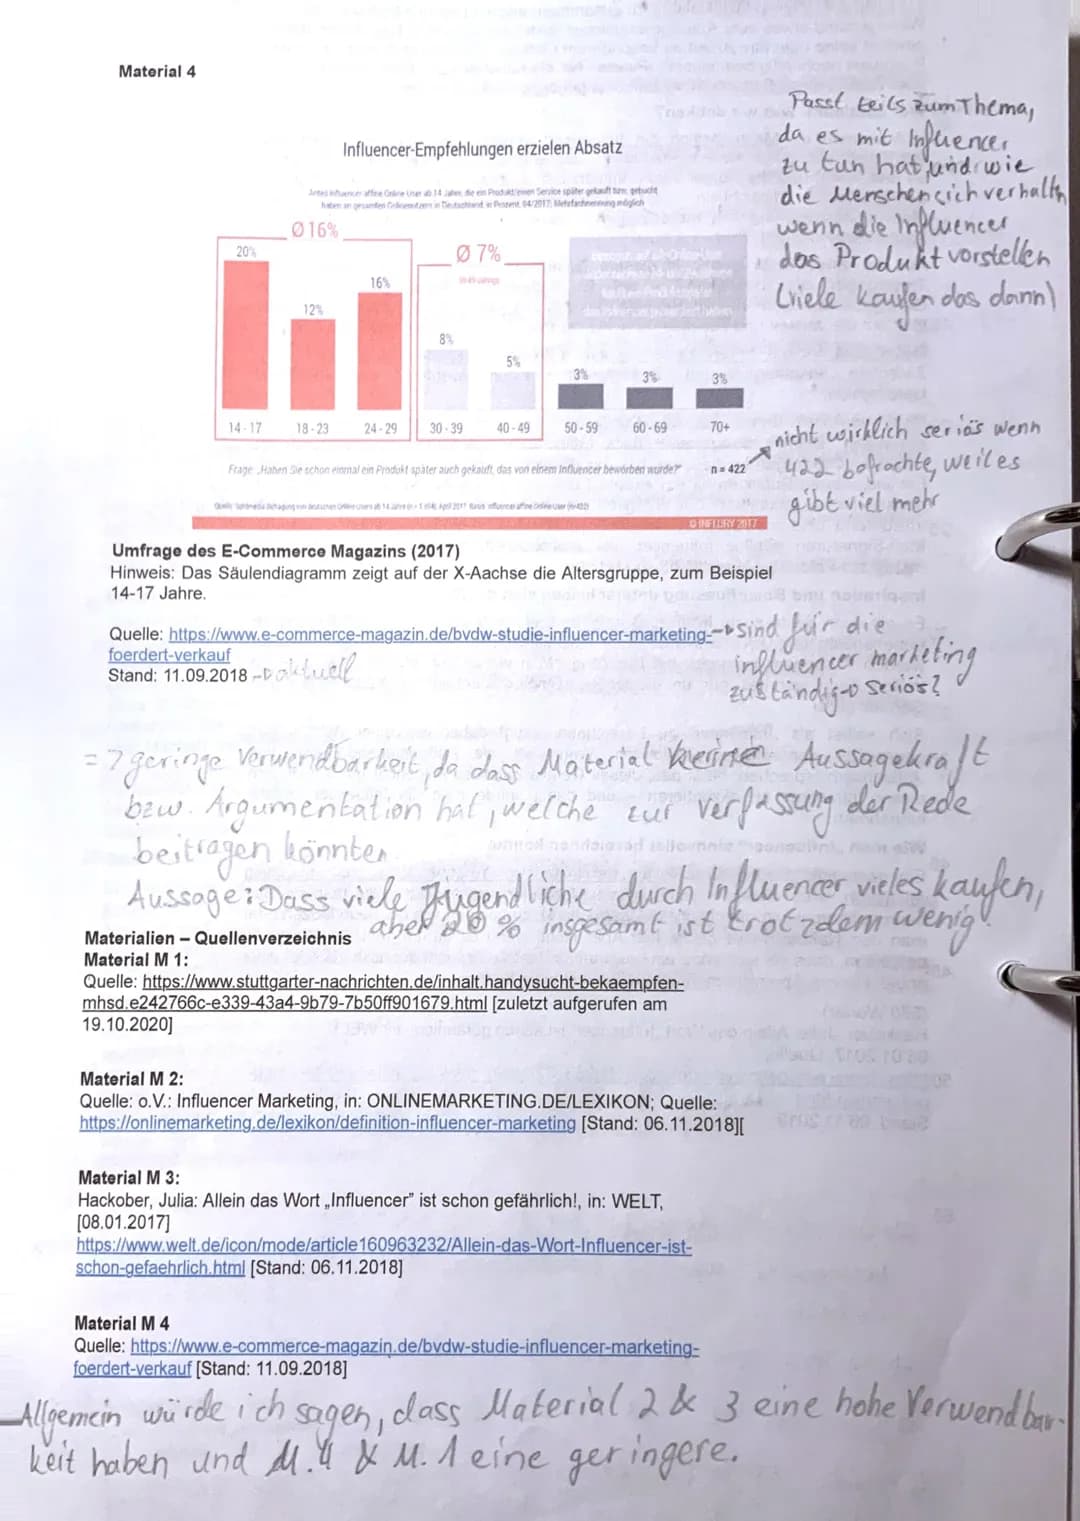 Material 4
Passt teils zum Thema,
da es mit Influencer
zu tun hat, und wie
die Menschen sich verhalten
wenn die Influencer
das Produkt vorstellen
(viele kaufen das dann)
Influencer-Empfehlungen erzielen Absatz
Anteil influencer affine Online User ab 14 Jahre, die ein Produkt/einen Service später gekauft bzw. gebucht
haben an gesamten Onlinenutzern in Deutschland, in Prozent, 04/2017; Mehrfachnennung möglich
Ø 16%
Ø 7%
20%
12%
16%
8%
5%
3%
3%
3%
14 - 17
18 - 23
24 - 29
30 - 39
40 - 49
50 - 59
60 - 69
70+
Frage: „Haben Sie schon einmal ein Produkt später auch gekauft, das von einem Influencer beworben wurde?"
n = 422
nicht wirklich seriös wenn
422 befrachte, weil es
gibt viel mehr
© INFLURY 2017
Umfrage des E-Commerce Magazins (2017)
Hinweis: Das Säulendiagramm zeigt auf der X-Aachse die Altersgruppe, zum Beispiel
14-17 Jahre.
Quelle: https://www.e-commerce-magazin.de/bvdw-studie-influencer-marketing-
foerdert-verkauf
Stand: 11.09.2018 → aktuell
→ sind für die
influencer marketing
zuständig → seriös?
=> geringe Verwendbarkeit, da dass Material keine Aussagekraft
bzw. Argumentation hat, welche zur verfassung der Rede
beitragen könnten.
Aussage: Dass viele Jugendliche durch Influencer vieles kaufen,
aber 20 % insgesamt ist trotzdem wenig!
Materialien – Quellenverzeichnis
Material M 1:
Quelle: https://www.stuttgarter-nachrichten.de/inhalt.handysucht-bekaempfen-
mhsd.e242766c-e339-43a4-9b79-7b50ff901679.html [zuletzt aufgerufen am
19.10.2020]
Material M 2:
Quelle: o.V.: Influencer Marketing, in: ONLINEMARKETING.DE/LEXIKON; Quelle:
https://onlinemarketing.de/lexikon/definition-influencer-marketing [Stand: 06.11.2018][
Material M 3:
Hackober, Julia: Allein das Wort „Influencer" ist schon gefährlich!, in: WELT,
[08.01.2017]
https://www.welt.de/icon/mode/article160963232/Allein-das-Wort-Influencer-ist-
schon-gefaehrlich.html [Stand: 06.11.2018]
Material M 4
Quelle: https://www.e-commerce-magazin.de/bvdw-studie-influencer-marketing-
foerdert-verkauf [Stand: 11.09.2018]
Allgemein würde ich sagen, dass Material 2 & 3 eine hohe Verwendbar-
keit haben und M.4 & M.1 eine geringere.